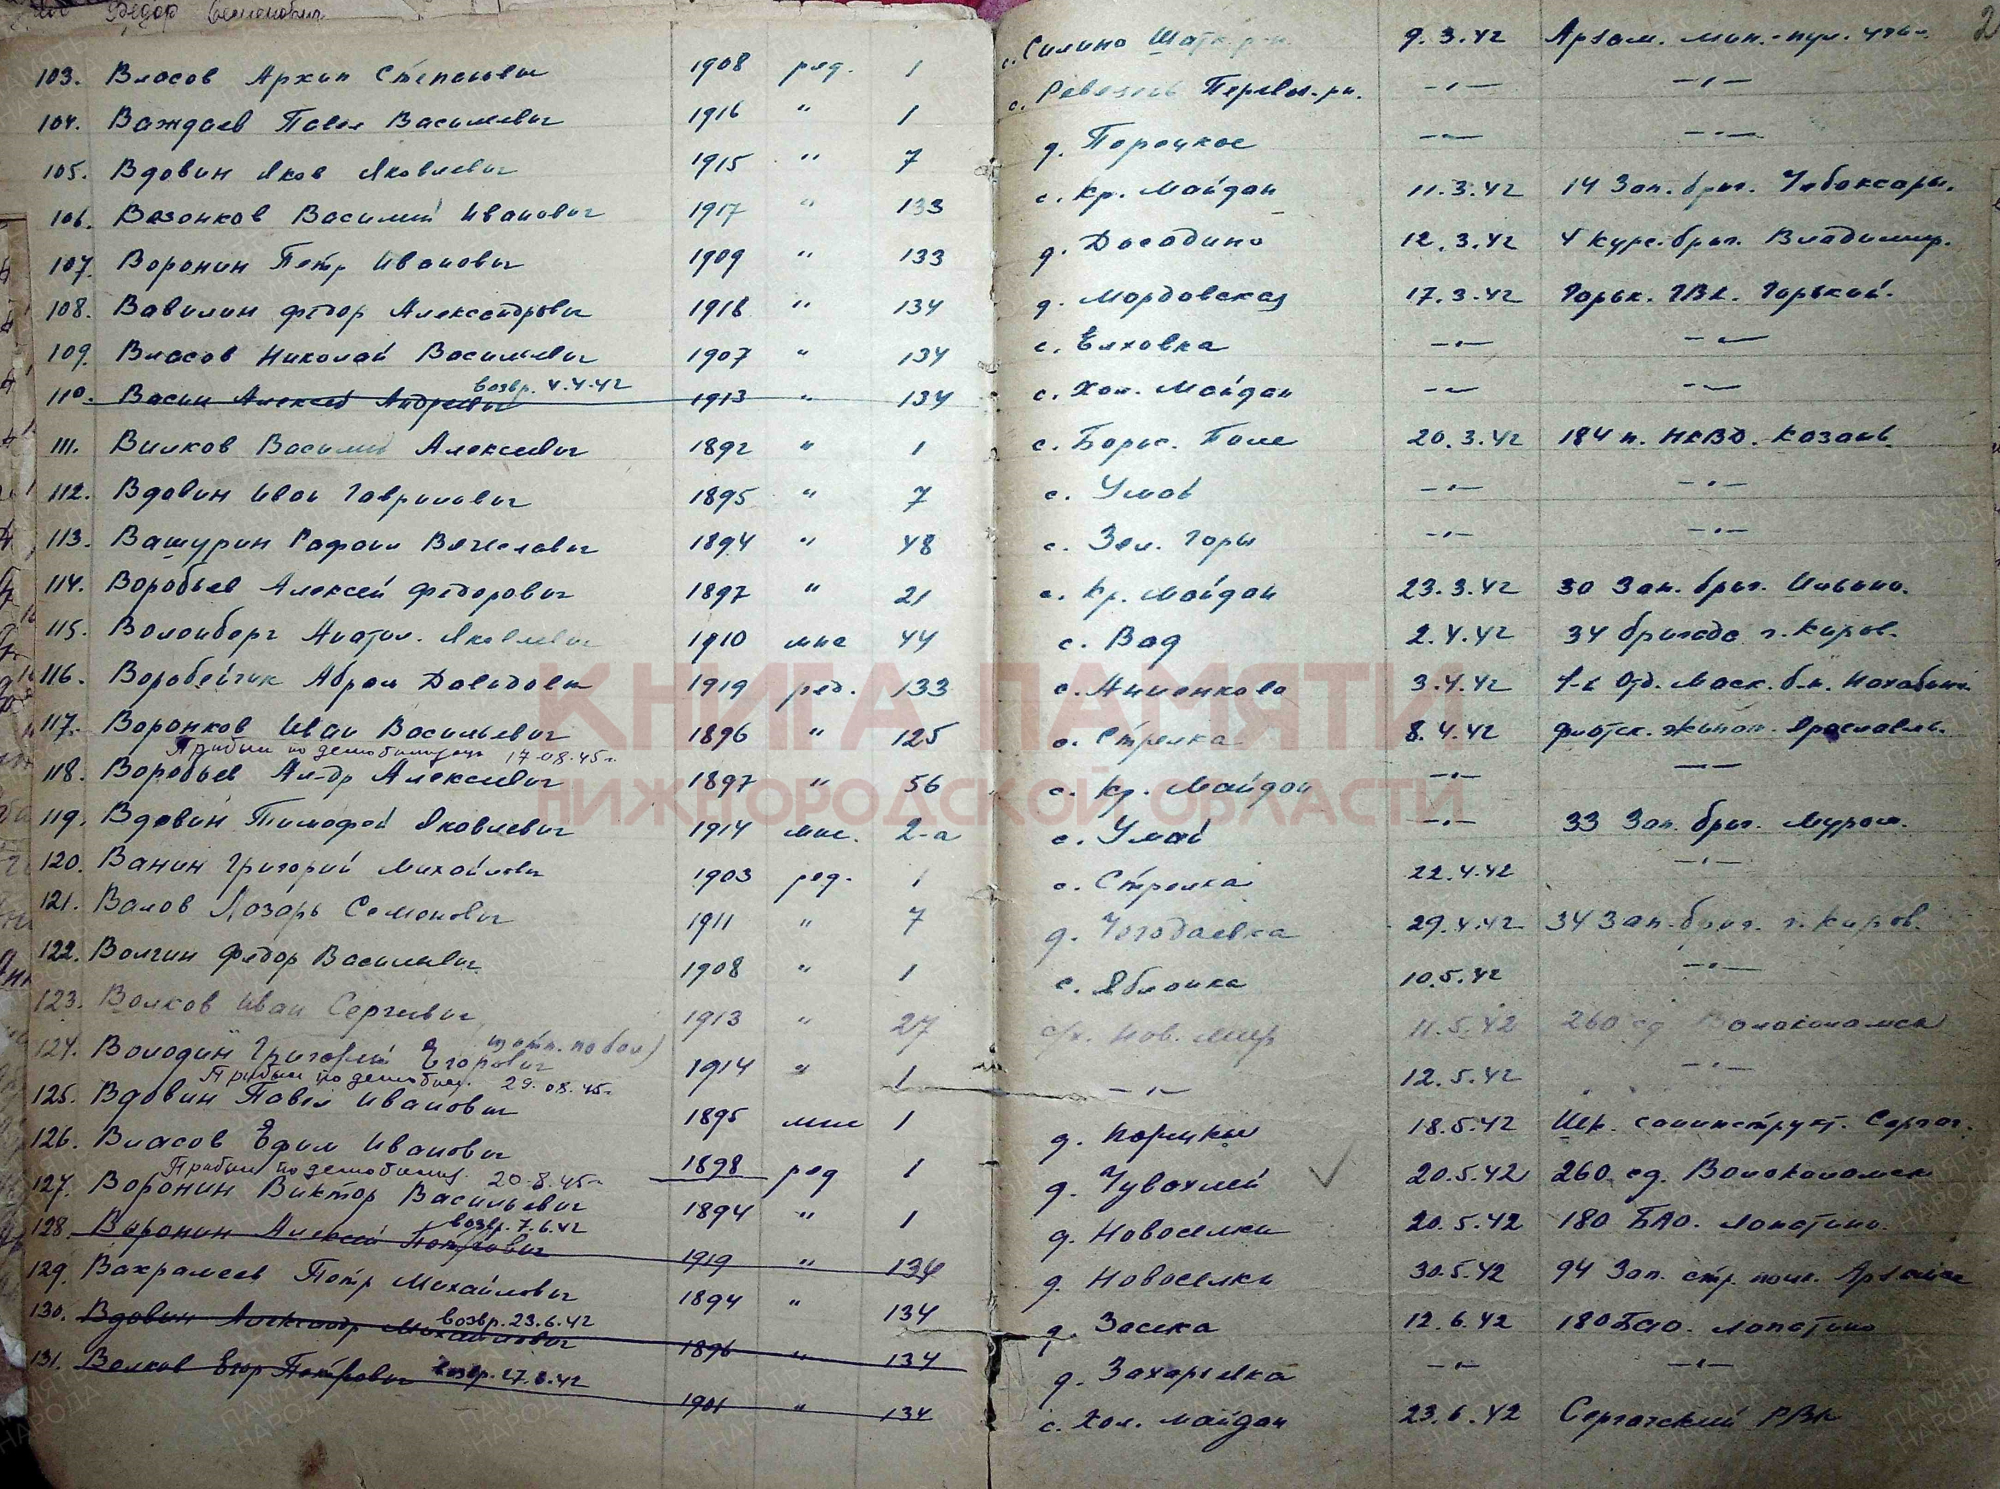 Федор Семенович
103. Власов Архип Степанович 1908 ряд. 1 с. Силино Шатк. р-н. 9.3.42 Арзам. мин.-пул. учил. 2
104. Важдаев Павел Васильевич 1916 " 1 с. Ревезень Перевоз. рн. —"— —"—
105. Вдовин Яков Яковлевич 1915 " 7 д. Порецкое —"— —"—
106. Вазонков Василий Иванович 1917 " 133 с. Кр. Майдан 11.3.42 14 Зап. бриг. Чебоксары.
107. Воронин Петр Иванович 1909 " 133 д. Досадино 12.3.42 4 Курс. бриг. Владимир.
108. Вавилин Федор Александрович 1918 " 134 д. Мордовская 17.3.42 Горьк. ГВК. Горький.
109. Власов Николай Васильевич 1907 " 134 с. Елховка —"— —"—
возвр. 4.4.42
110. Васин Алексей Андреевич 1913 " 134 с. Хол. Майдан —"— —"—
111. Вилков Василий Алексеевич 1892 " 1 с. Борис. Поле 20.3.42 184 п. НКВД. Казань
112. Вдовин Иван Гаврилович 1895 " 7 с. Умай —"— —"—
113. Вашурин Рафаил Вячеславич 1894 " 48 с. Зел. Горы —"— —"—
114. Воробьев Алексей Федорович 1897 " 21 с. Кр. Майдан 23.3.42 30 Зап. бриг. Ильино.
115. Воленберг Анатол. Яковлевич 1910 млс 44 с. Вад 2.4.42 34 бригада г. Киров.
116. Воробейчик Абрам Давидович 1919 ряд. 133 с. Анненково 3.4.42 4-й Отд. Моск. б-н. Нахабино.
117. Воронков Иван Васильевич 1896 " 125 с. Стрелка 8.4.42 Флотск. экипаж Ярославль.
Прибыл по демобилизации 17.08.45 г.
118. Воробьев Ал-др Алексеевич 1897 " 56 с. Кр. Майдан —"— —"—
119. Вдовин Тимофей Яковлевич 1914 млс. 2-а с. Умай —"— 33 Зап. бриг. Муром.
120. Ванин Григорий Михайлович 1903 ряд. 1 с. Стрелка 22.4.42 —"—
121. Валов Лазарь Семенович 1911 " 7 д. Чегодаевка 29.4.42 34 Зап. бриг. г. Киров.
122. Волгин Федор Васильевич 1908 " 1 с. Яблонка 10.5.42 —"—
123. Волков Иван Сергеевич 1913 " 27 с/х. Нов. Мир 11.5.42 260 сд Волоколамск
124. Володин Григорий Егорович 1914 " 1 —"— 12.5.42 —"—
Прибыл по демобил. 29.08.45 г.
125. Вдовин Павел Иванович 1895 млс 1 д. Корицы 18.5.42 Шк. санинструкт. Сергач.
126. Власов Ефим Иванович 1898 ряд 1 д. Чувахлей 20.5.42 260 сд. Волоколамск
Прибыл по демобилиз. 20.8.45 г.
127. Воронин Виктор Васильевич 1894 " 1 д. Новоселки 20.5.42 180 БАО. Лопатино.
возвр. 7.6.42
128. Воронин Алексей Петрович 1919 " 134 д. Новоселки 30.5.42 94 Зап. стр. полк. Арзамас
129. Вахрамеев Петр Михайлович 1894 " 134 д. Засека 12.6.42 180 БАО. Лопатино
возвр. 23.6.42
130. Вдовин Александр Михайлович 1896 " 134 д. Захаровка —"— —"—
131. Волков Егор Петрович возвр. 27.6.42 1901 " 134 с. Хол. Майдан 23.6.42 Сергачский РВК
КНИГА ПАМЯТИ
НИЖНОРОДСКОЙ ОБЛАСТИ